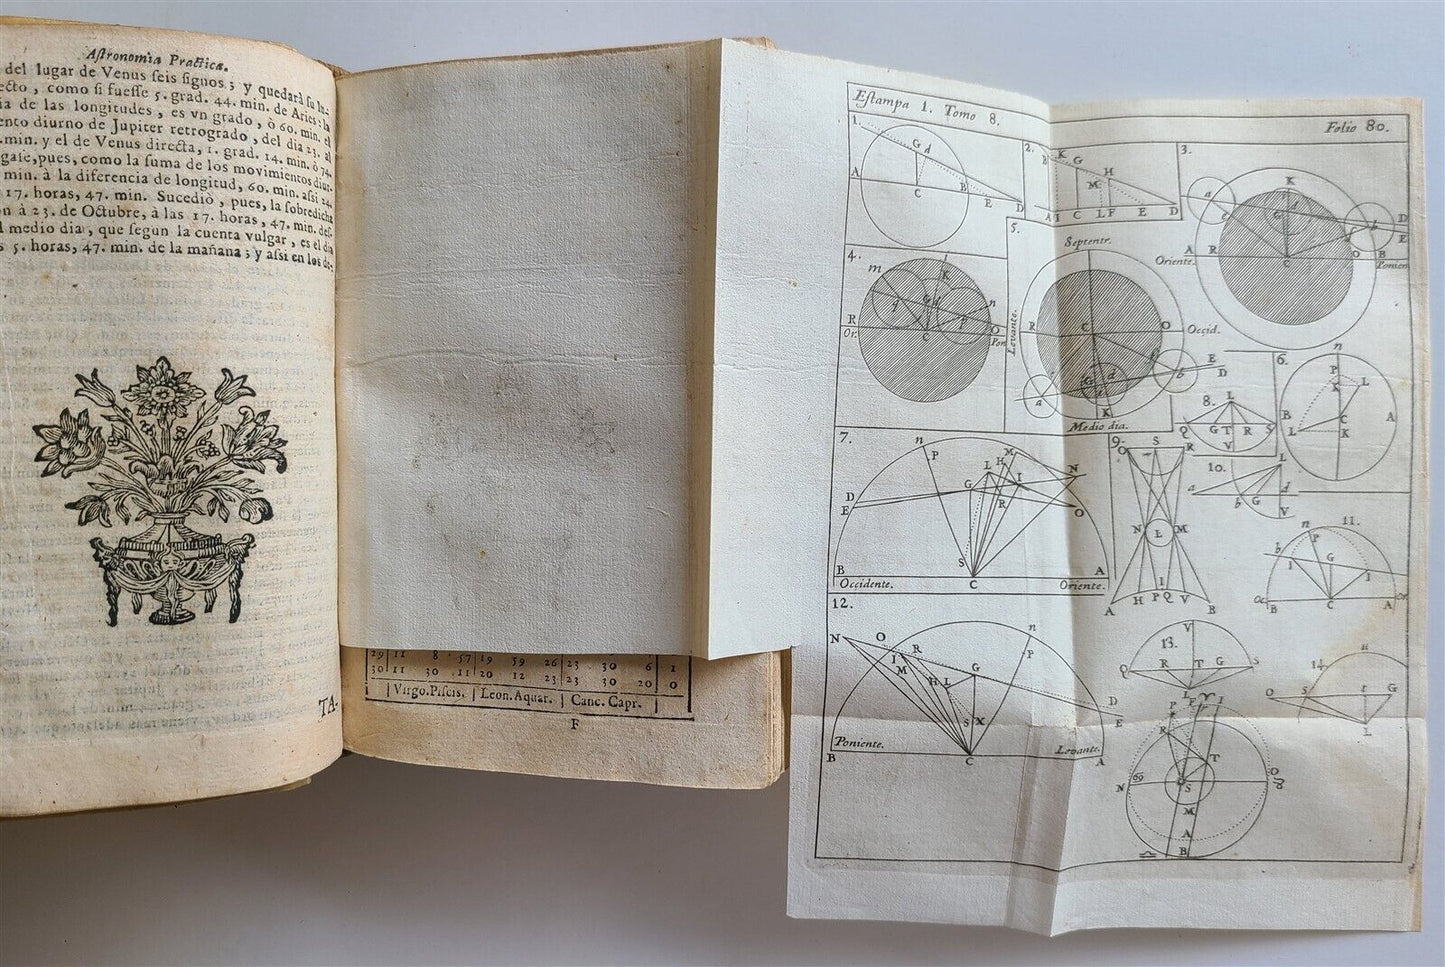 Aſtronomia Practica.
del lugar de Venus ſeis ſignos; y quedarà ſu lu-
ecto, como ſi fueſſe 5. grad. 44. min. de Aries: la
ia de las longitudes, es vn grado, ò 60. min. el
ento diurno de Jupiter retrogrado, del dia 23. al
min. y el de Venus directa, 1. grad. 14. min. ò 74.
gaſe, pues, como la ſuma de los movimientos diur-
min. à la diferencia de longitud, 60. min. aſsi 24.
17. horas, 47. min. Sucediò, pues, la ſobredicha
on à 23. de Octubre, à las 17. horas, 47. min. deſ-
l medio dia, que ſegun la cuenta vulgar, es el dia
s 5. horas, 47. min. de la mañana; y aſsi en los de-
TA-
29 11 8 57 19 59 26 23 30 6 1
30 11 30 11 20 12 23 23 30 20 0
Virgo. Piſcis. Leon. Aquar. Canc. Capr.
F
Eſtampa 1. Tomo 8.
Folio 80.
1.
G d
A C B E D
2.
B K G
H
M
A I C L F E D
3.
K
a d
e G b D
E
A R C O B
Oriente. Ponien
4.
m K
G d n
R C O
Or. Pon
5.
Septentr.
Levante.
R C O Occid.
E
G d b D
a K
Medio dia.
6.
n
P
K L
B C A
L K
7.
n M
P L H N
D G I
E R O
S
B A
Occidente. C Oriente.
8.
L
Q G T R S
V
9.
O S R
N L M
I
A H P Q V B
10.
L
a b G d
V
11.
n
b P G
I I
B C A
12.
N O n
I R P
M G
H L D
S X E
Poniente. Levante.
B C A
13.
V
Q R T G S
L
14
n
O S t G
L
P I
R
T
N S
M
A
B